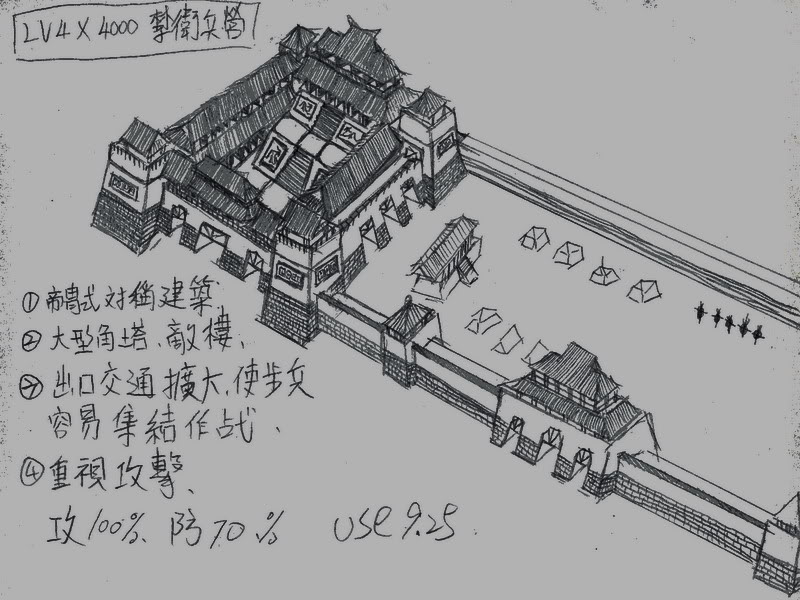 LV4 X 4000 擊衛兵營
① 市冑式对稱建築
② 大型角塔、敵樓、
③ 出口交通擴大,使步兵
容易集結作战、
④ 重視攻擊、
攻100%、防70% USE 9.25